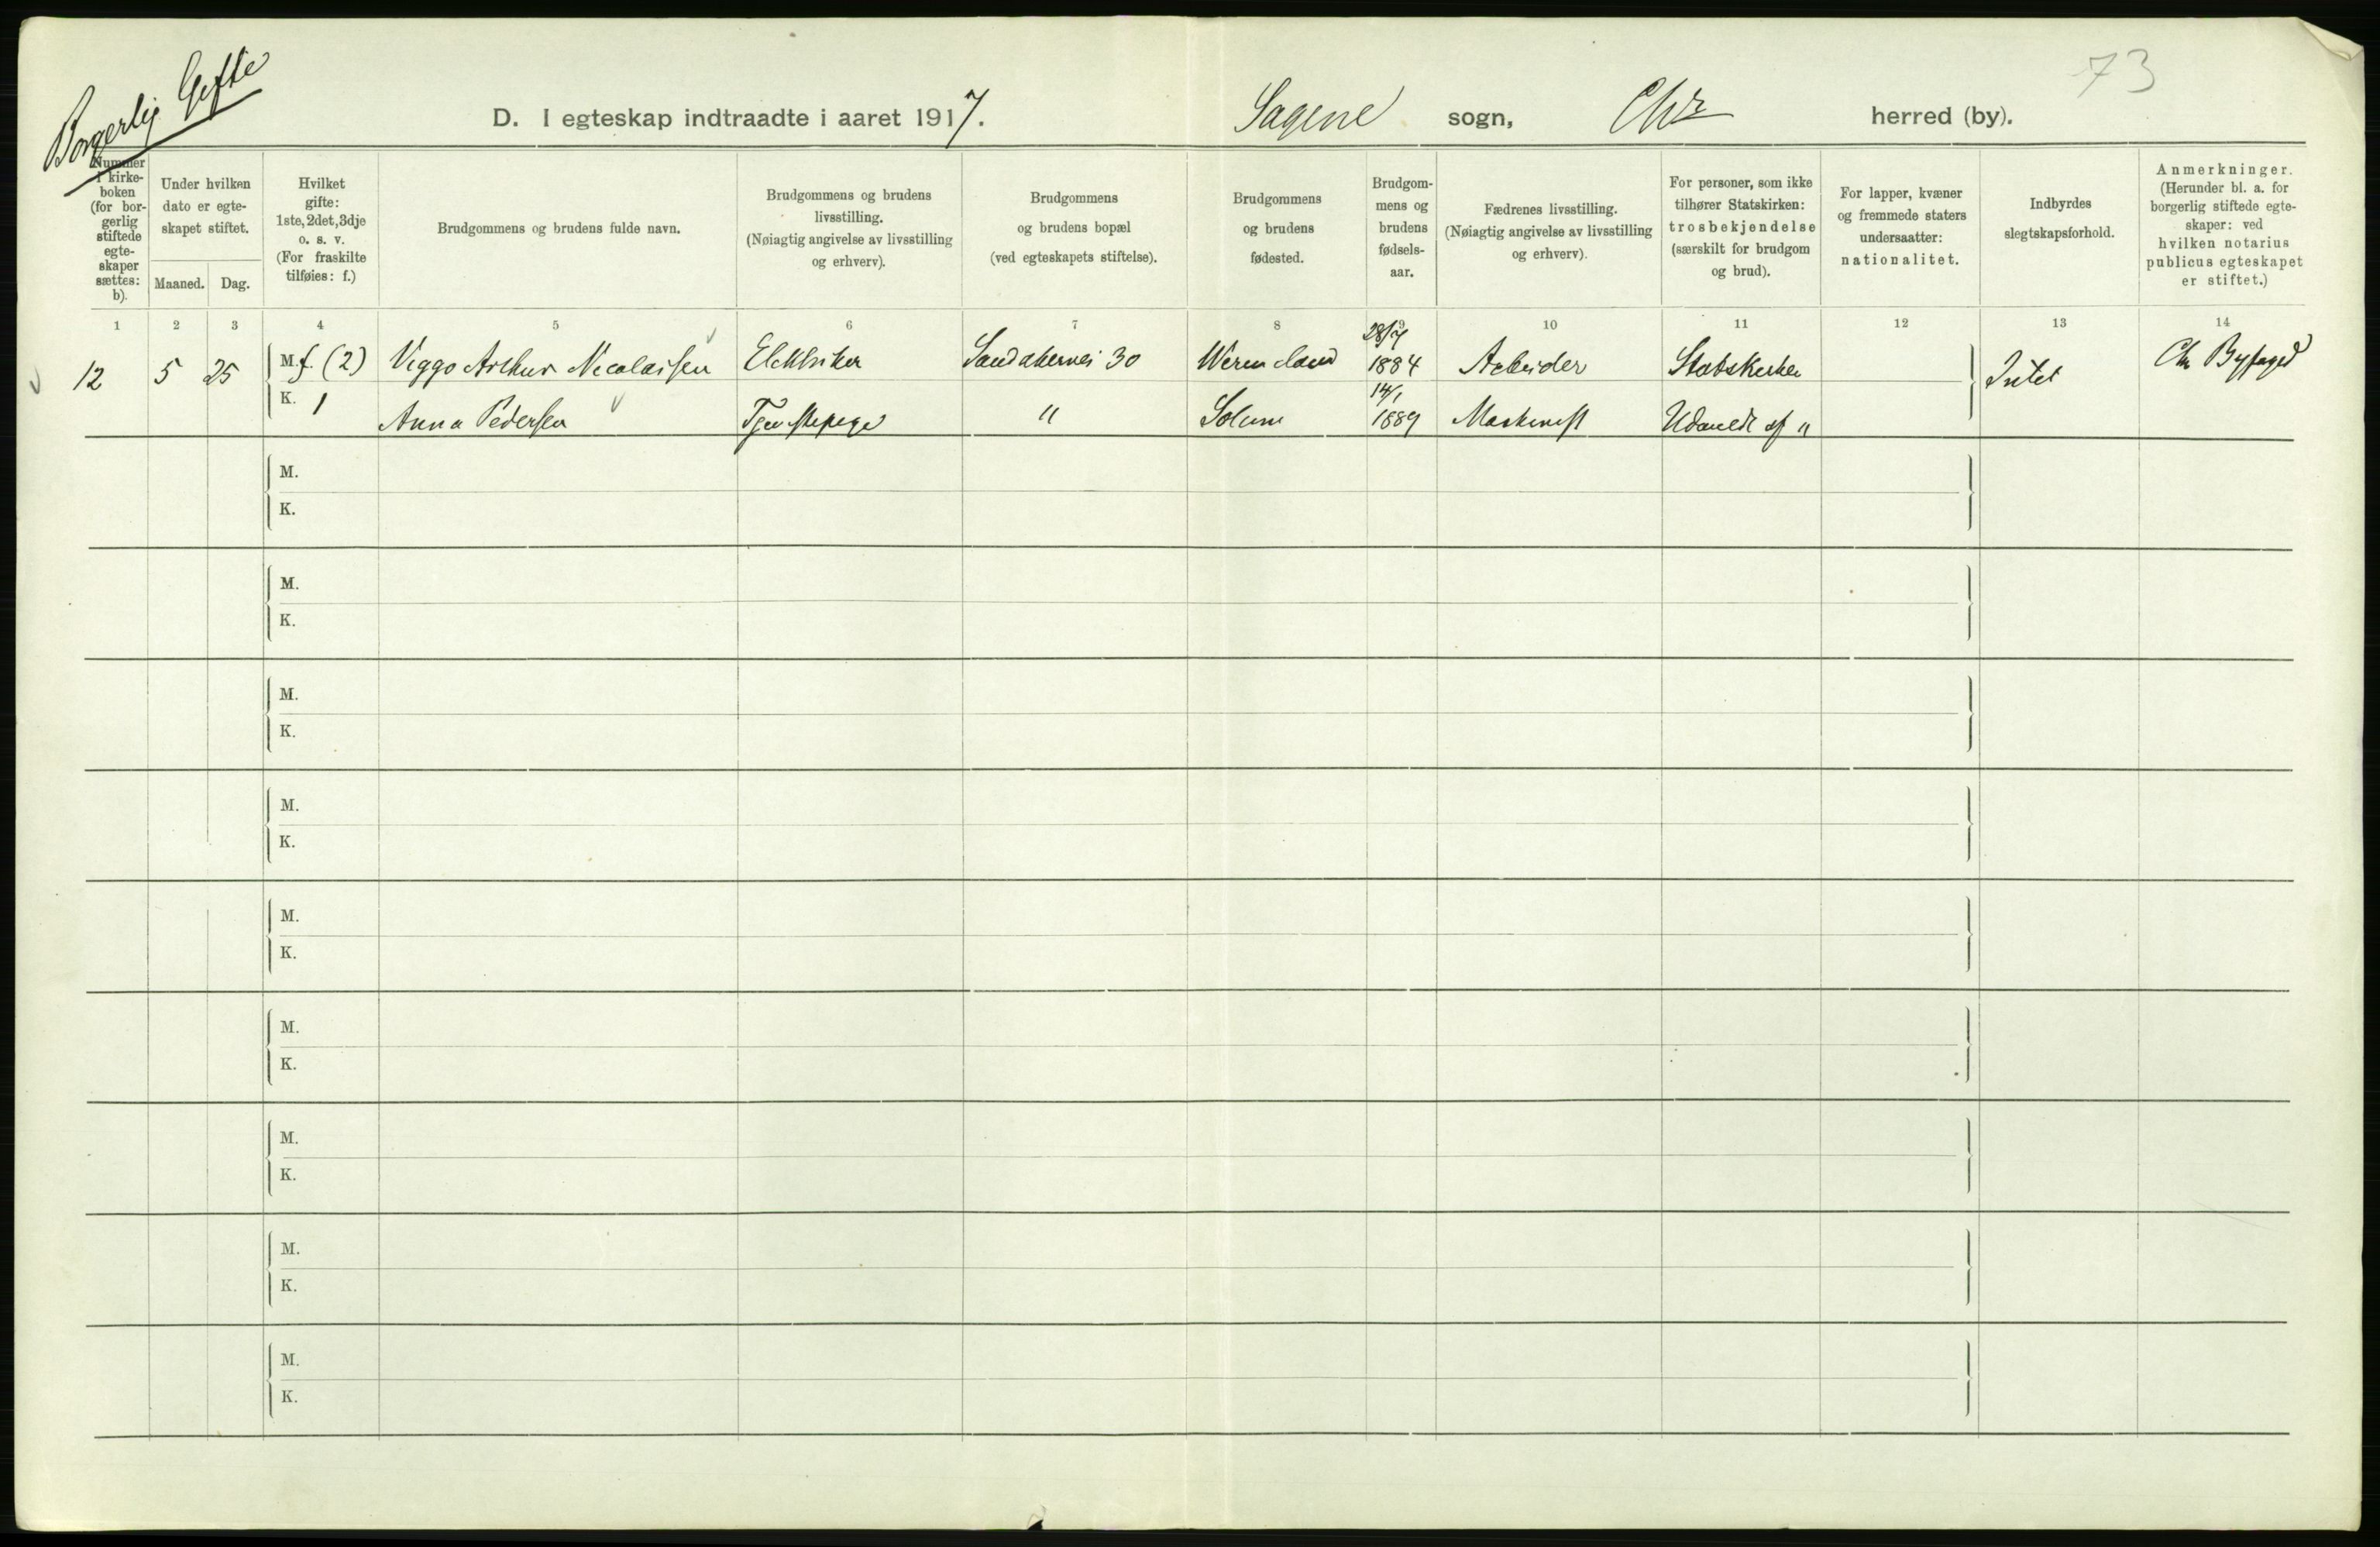 Borgerlig Gifte
73
D. I egteskap indtraadte i aaret 1917. Sagene sogn, Chr herred (by).
Nummer
i kirke-
boken
(for bor-
gerlig
stiftede
egte-
skaper
sættes:
b).
Under hvilken
dato er egte-
skapet stiftet.
Maaned. Dag.
Hvilket
gifte:
1ste, 2det, 3dje
o. s. v.
(For fraskilte
tilføies: f.)
Brudgommens og brudens fulde navn.
Brudgommens og brudens
livsstilling.
(Nøiagtig angivelse av livsstilling
og erhverv).
Brudgommens
og brudens bopæl
(ved egteskapets stiftelse).
Brudgommens
og brudens
fødested.
Brudgom-
mens og
brudens
fødsels-
aar.
Fædrenes livsstilling.
(Nøiagtig angivelse av livsstilling
og erhverv).
For personer, som ikke
tilhører Statskirken:
trosbekjendelse
(særskilt for brudgom
og brud).
For lapper, kvæner
og fremmede staters
undersaatter:
nationalitet.
Indbyrdes
slegtskapsforhold.
Anmerkninger.
(Herunder bl. a. for
borgerlig stiftede egte-
skaper: ved
hvilken notarius
publicus egteskapet
er stiftet.)
1 2 3 4 5 6 7 8 9 10 11 12 13 14
12 5 25 M. f. (2) Viggo Arthur Nicolaisen Elektriker Sandakervei 30 Wermeland 1884 Arbeider Statskirken Intet Chr Byfoged
K. 1 Anna Pedersen Tjenstepige " Solum 14/1 1889 Maskinist Udmeldt af "
M.
K.
M.
K.
M.
K.
M.
K.
M.
K.
M.
K.
M.
K.
M.
K.
M.
K.